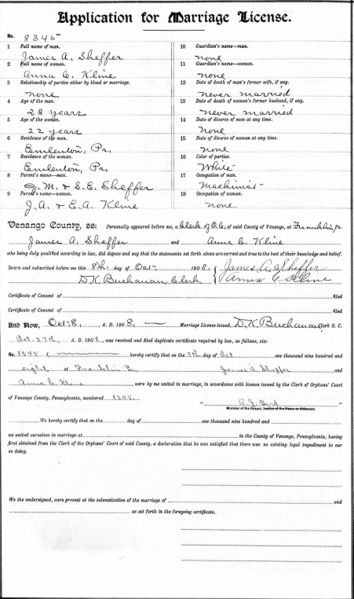 Application for Marriage License.
No. 8345
1 Full name of man. James A. Sheffer
2 Full name of woman. Anna C. Kline
3 Relationship of parties either by blood or marriage. none
4 Age of the man. 28 years
5 Age of the woman. 22 years
6 Residence of the man. Emlenton, Pa.
7 Residence of the woman. Emlenton, Pa.
8 Parent's name—man. G. M. & S. E. Sheffer
9 Parent's name—woman. J. A. & E. A. Kline
10 Guardian's name—man. none
11 Guardian's name—woman. none
12 Date of death of man's former wife, if any. never married
13 Date of death of woman's former husband, if any. never married
14 Date of divorce of man at any time. none
15 Date of divorce of woman at any time. none
16 Color of parties. White
17 Occupation of man. Machinist
18 Occupation of woman. none
Venango County, ss: Personally appeared before me, a Clerk of O. C. of said County of Venango, at Franklin, Pa.
James A. Sheffer and Anna C. Kline
who being duly qualified according to law, did depose and say that the statements set forth above are correct and true to the best of their knowledge and belief.
Sworn and subscribed before this 8th day of Oct. 1908. James A. Sheffer
D. K. Buchanan Clerk Anna C. Kline
Certificate of Consent of filed
Certificate of Consent of filed
And Now, Oct. 8, A. D. 1908 Marriage License issued. D. K. Buchanan O. C.
Oct. 27th A. D. 1908, was received and filed duplicate certificate required by law, as follows, viz:
No. hereby certify that on the day of Oct one thousand nine hundred and
eight at Franklin Pa James A Sheffer
and Anna C. Kline were by me united in marriage, in accordance with license issued by the Clerk of Orphans' Court
of Venango County, Pennsylvania, numbered
Minister of the Gospel, Justice of the Peace or Alderman.
We hereby certify that on the day of one thousand nine hundred and
we united ourselves in marriage at in the County of Venango, Pennsylvania, having
first obtained from the Clerk of the Orphans' Court of said County, a declaration that he was satisfied that there was no existing legal impediment to our
so doing.
We the undersigned, were present at the solemnization of the marriage of and
as set forth in the foregoing certificate.